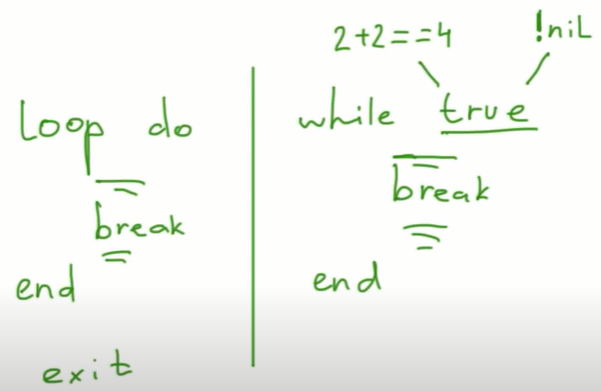 loop do
break
end
exit
2+2==4
!nil
while true
break
end